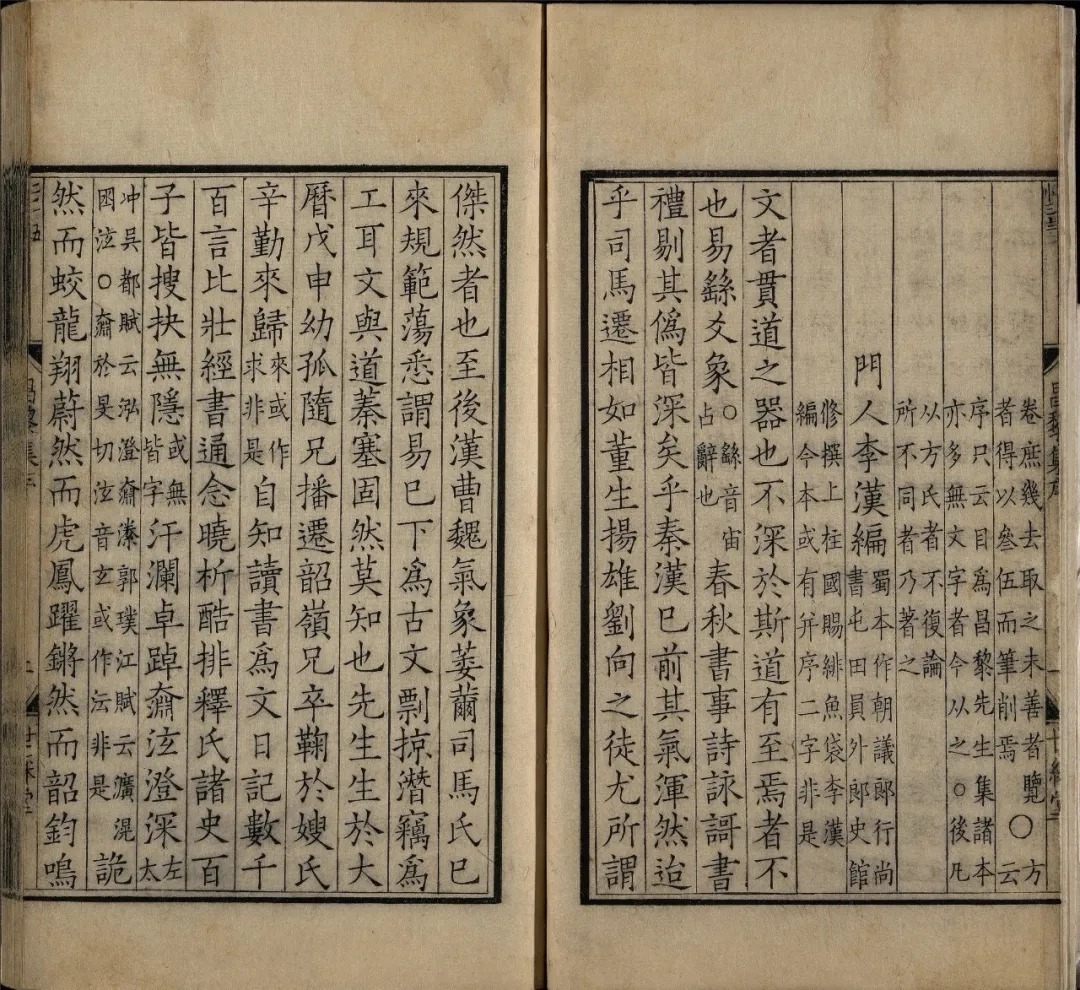 卷庶幾去取之未善者覽
者得以參伍而筆削焉○方云
序只云目爲昌黎先生集諸本
亦多無文字者今从之○後凡
以方氏者不復論
所不同者乃著之
門人李漢編蜀本作朝議郎行尚書屯田員外郎史館
修撰上柱國賜緋魚袋李漢
編今本或有并序二字非是
文者貫道之器也不深於斯道有至焉者不
也易繇爻象○繇音宙占辭也春秋書事詩詠謌書
禮剔其僞皆深矣乎秦漢已前其氣渾然迨
乎司馬遷相如董生揚雄劉向之徒尤所謂
傑然者也至後漢曹魏氣象萎薾司馬氏已
來規範蕩悉謂易已下爲古文剽掠潛竊爲
工耳文與道蓁塞固然莫知也先生生於大
曆戊申幼孤隨兄播遷韶嶺兄卒鞠於嫂氏
辛勤來歸來或作求非是自知讀書爲文日記數千
百言比壯經書通念曉析酷排釋氏諸史百
子皆搜抉無隱或無皆字汗瀾卓踔奫泫澄深左太
冲吳都賦云泓澄奫潫郭璞江賦云瀇滉
囦泫○奫於旻切泫音玄或作沄非是詭
然而蛟龍翔蔚然而虎鳳躍鏘然而韶鈞鳴
昌黎集